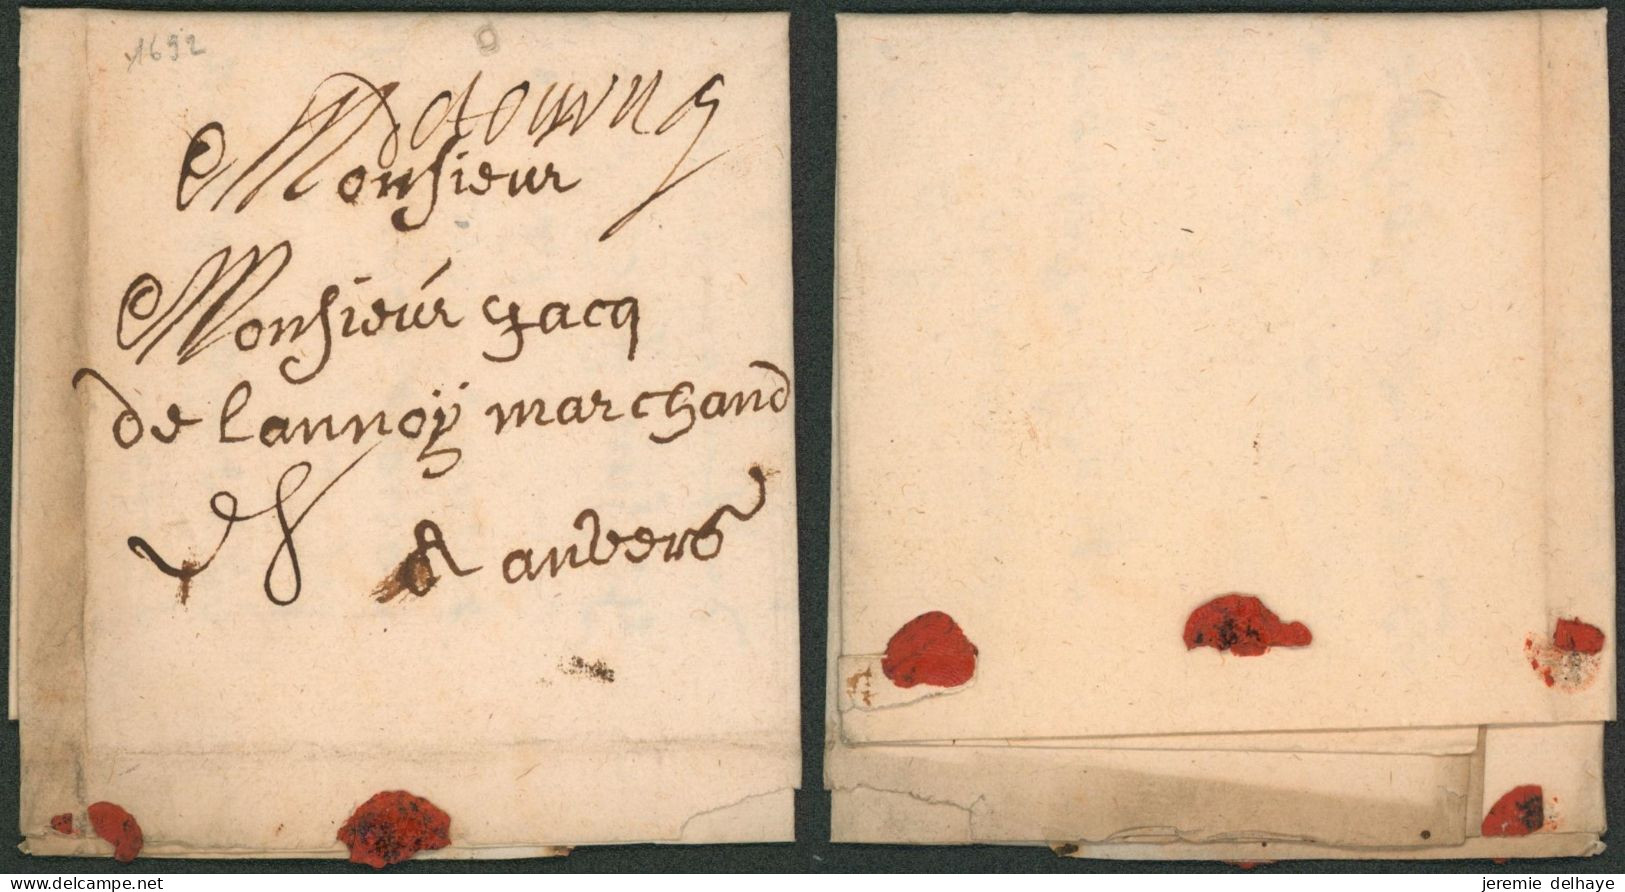 1692
de tournay
Monsieur
Monsieur Jacq
de lannoÿ marchand
A anvers
delcampe.net
jeremie delhaye